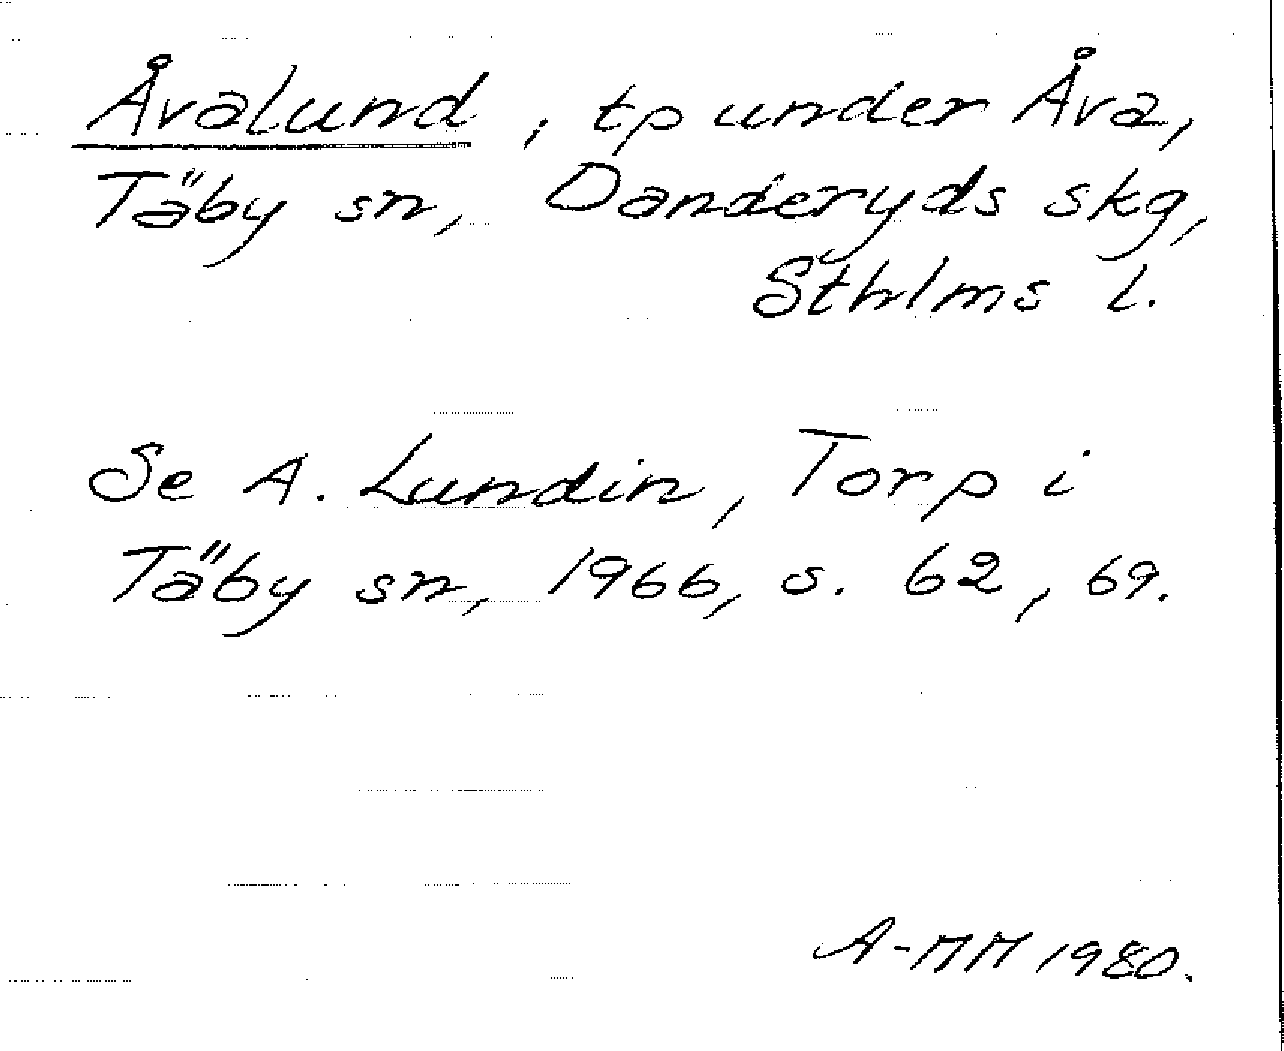 Åvalund, tp under Åva,
Täby sn, Danderyds skg,
Sthlms l.
Se A. Lundin, Torp i
Täby sn, 1966, s. 62, 69.
A-MM 1980.